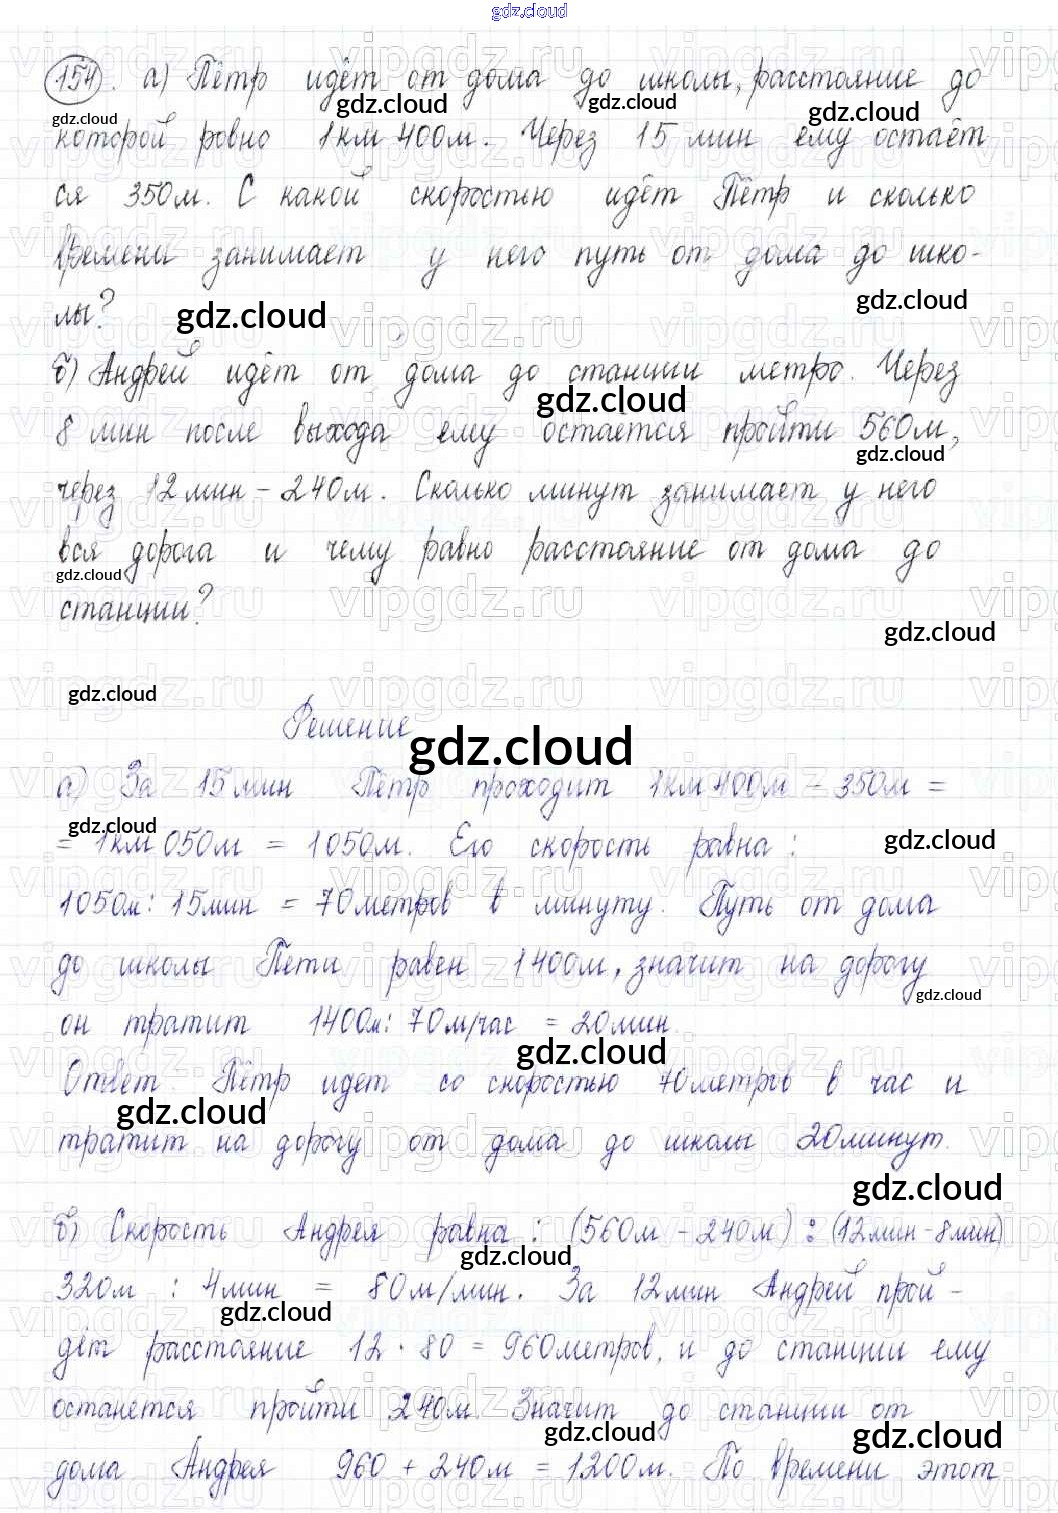 gdz.cloud
154. а) Пётр идёт от дома до школы, расстояние до
которой ровно 1км 400м. Через 15 мин ему остаёт
ся 350м. С какой скоростью идёт Пётр и сколько
времени занимает у него путь от дома до шко-
лы?
б) Андрей идёт от дома до станции метро. Через
8 мин после выхода ему остаётся пройти 560м,
через 12мин - 240м. Сколько минут занимает у него
вся дорога и чему равно расстояние от дома до
станции?
Решение
а) За 15мин Пётр проходит 1км 400м - 350м =
= 1км 050м = 1050м. Его скорость равна:
1050м : 15мин = 70метров в минуту. Путь от дома
до школы Пети равен 1400м, значит на дорогу
он тратит 1400м : 70м/час = 20мин.
Ответ. Пётр идет со скоростью 70метров в час и
тратит на дорогу от дома до школы 20минут.
б) Скорость Андрея равна : (560м - 240м) : (12мин - 8мин)
320м : 4мин = 80м/мин. За 12мин Андрей прой -
дёт расстояние 12 · 80 = 960метров, и до станции ему
останется пройти 240м. Значит до станции от
дома Андрея 960 + 240м = 1200м. По времени этот